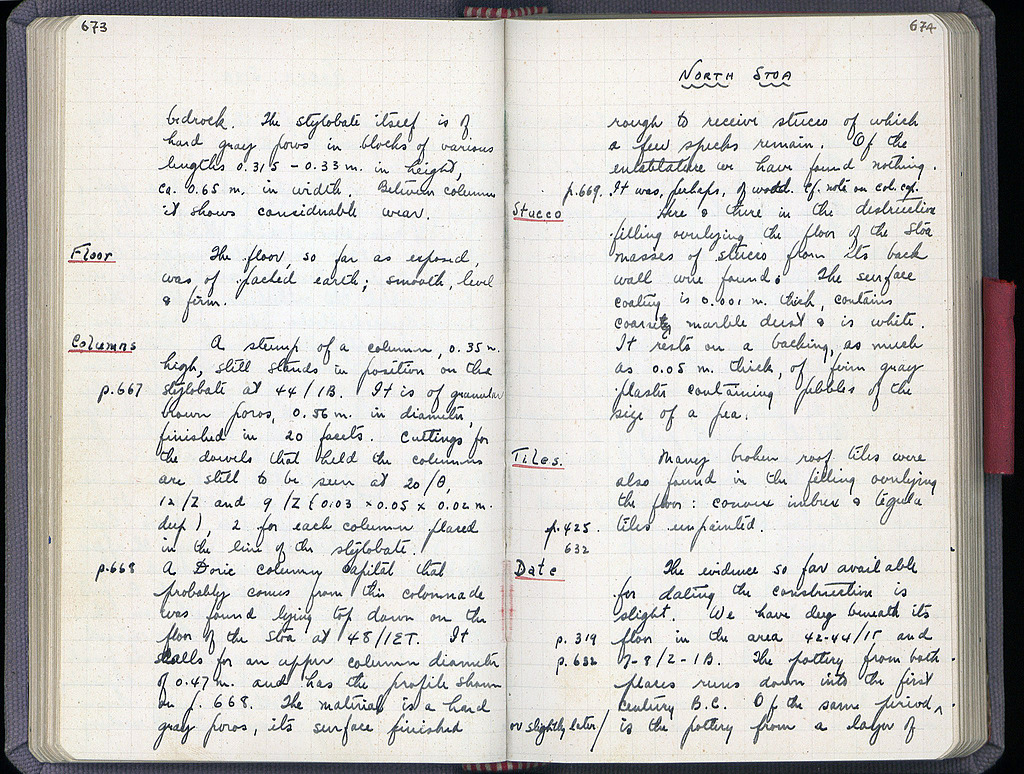 673
bedrock. The stylobate itself is of
hard gray poros in blocks of various
lengths 0.315 - 0.33 m. in height,
ca. 0.65 m. in width. Between columns
it shows considerable wear.
Floor
The floor, so far as exposed,
was of packed earth; smooth, level
& firm.
Columns
A stump of a column, 0.35 m.
high, still stands in position on the
p.667 stylobate at 44/IB. It is of granular
brown poros, 0.56 m. in diameter,
finished in 20 facets. Cuttings for
the dowels that held the columns
are still to be seen at 20/Θ,
12/Z and 9/Z (0.03 x 0.05 x 0.02 m.
deep), 2 for each column placed
in the line of the stylobate.
p.668 A Doric column capital that
probably comes from this colonnade
was found lying top down on the
floor of the Stoa at 48/IET. It
calls for an upper column diameter
of 0.47 m. and has the profile shown
on p. 668. The material is a hard
gray poros, its surface finished
674
NORTH STOA
rough to receive stucco of which
a few specks remain. Of the
entablature we have found nothing.
p.669. It was, perhaps, of wood. Cf. note on col. cap.
Stucco
Here & there in the destruction
filling overlying the floor of the Stoa
masses of stucco from its back
wall were found. The surface
coating is 0.001 m. thick, contains
coarse marble dust & is white.
It rests on a backing, as much
as 0.05 m. thick, of firm gray
plaster containing pebbles of the
size of a pea.
Tiles.
Many broken roof tiles were
also found in the filling overlying
the floor: convex imbrex & tegula
p.425. tiles unpainted.
632
Date
The evidence so far available
for dating the construction is
slight. We have dug beneath its
p. 319 floor in the area 42-44/IΓ and
p. 632 7-8/Z-IB. The pottery from both
places runs down into the first
century B.C. Of the same period,
or slightly later/ is the pottery from a layer of